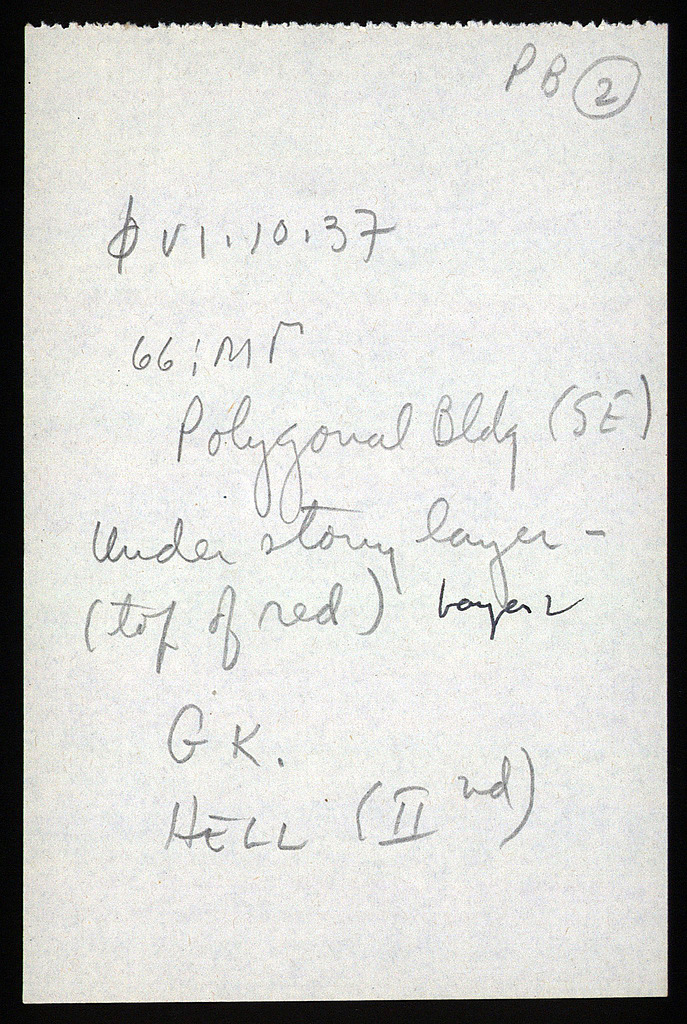 PB ②
ϕ VI.10.37
66; ΜΓ
Polygonal Bldg (SE)
Under stony layer -
(top of red) Layer 2
GK.
HELL (II nd)